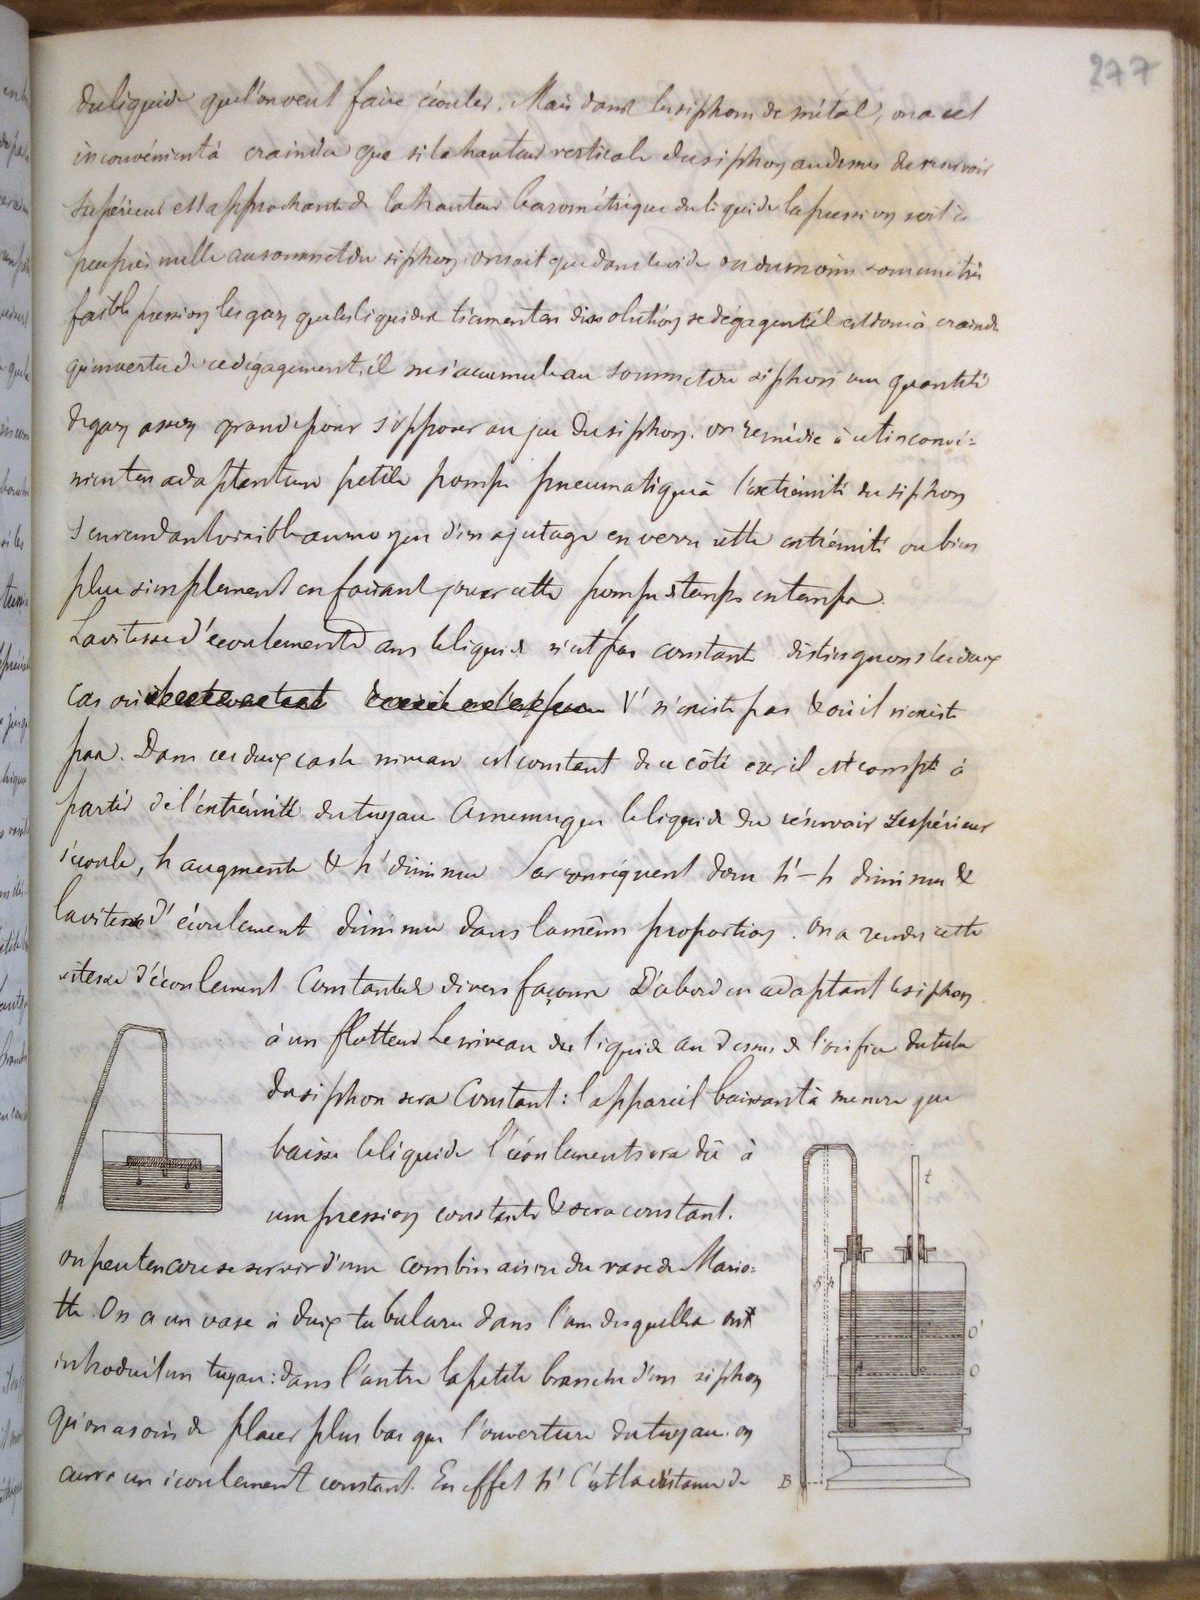 277
du liquide que l'on veut faire écouler. Mais dans les siphons de métal, on a cet
inconvénient à craindre que si la hauteur verticale du siphon au dessus du reservoir
supérieur est approchante de la hauteur barométrique du liquide la pression soit à
peu près nulle au sommet du siphon; on sait que dans le vide ou du moins sous une très
faible pression les gaz que les liquides tiennent en dissolution se dégagent il est donc à craindre
qu'en vertu de ce dégagement, il ne s'accumule au sommet du siphon une quantité
de gaz assez grande pour s'opposer au jeu du siphon. on remédie à cet inconvé=
nient en adaptant une petite pompe pneumatique à l'extrémité du siphon
en rendant visible au moyen d'un ajutage en verre cette extrémité ou bien
plus simplement en faisant jouer cette pompe de temps en temps.
La vitesse d'écoulement dans le liquide n'est pas constante distinguons les deux
cas où V' n'existe pas & où il n'existe
pas. Dans ces deux cas le niveau est constant de ce côté car il est compté à
partir de l'extrémité du tuyau A mesure que le liquide du réservoir supérieur
s'écoule, h augmente & h' diminue Par conséquent donc h'-h diminue &
la vitesse d'écoulement diminue dans la même proportion. On a rendu cette
vitesse d'écoulement constante de divers façons D'abord en adaptant le siphon
à un flotteur Le niveau du liquide au dessus de l'orifice du tube
du siphon sera constant: l'appareil baissant à mesure que
baisse le liquide l'écoulement sera dû à
une pression constante & sera constant.
on peut encore se servir d'une combinaison du vase de Mario=
tte. On a un vase à deux tubulures dans l'une desquelles est
introduit un tuyau: dans l'autre la petite branche d'un siphon
qu'on a soin de placer plus bas que l'ouverture du tuyau. on
aura un écoulement constant. En effet h' c'est la distance de
t
h' h
O'
O
B